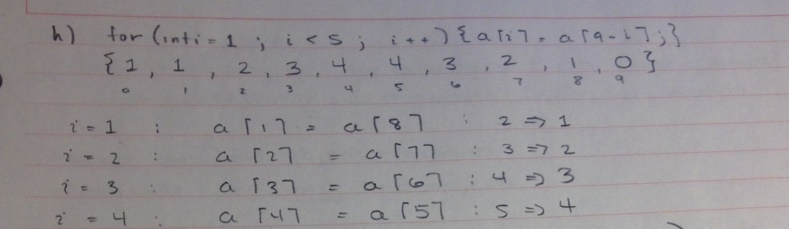 h) for (int i = 1 ; i < 5 ; i++) { a[i] = a[9-i]; }
{ 1 , 1 , 2 , 3 , 4 , 4 , 3 , 2 , 1 , 0 }
0 1 2 3 4 5 6 7 8 9
i = 1 : a [1] = a [8] : 2 => 1
i = 2 : a [2] = a [7] : 3 => 2
i = 3 : a [3] = a [6] : 4 => 3
i = 4 : a [4] = a [5] : 5 => 4